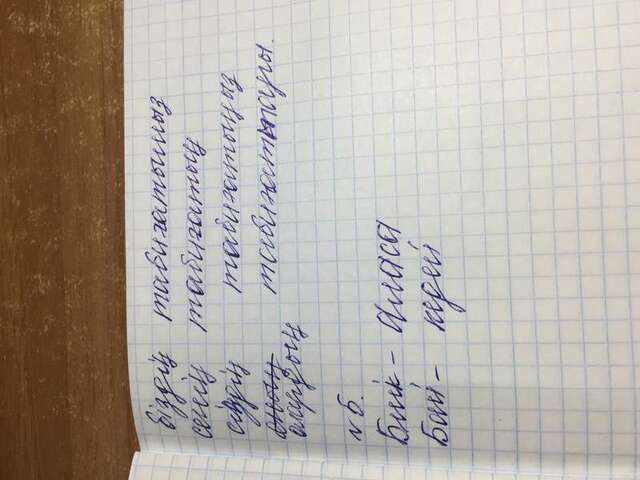 біздің табиғатымыз
сенің табиғатың
сіздің табиғатыңыз
оның табиғаттары.
олардың
№5.
Биік - аласа
Бай - кедей